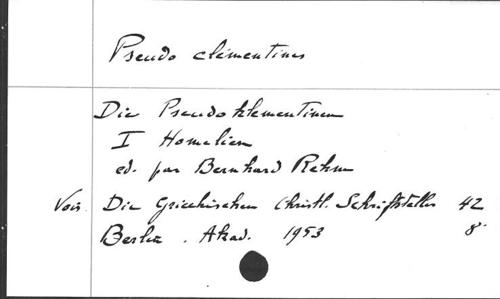 Pseudo clémentines
Die Pseudoklementinen
I Homelien
ed. par Bernhard Rehm
Voir Die Griechischen Christl. Schriftsteller 42
Berlin. Akad. 1953 8°